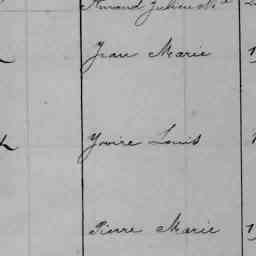 Armand Julien M
Jean Marie
Yvoire Louis
Pierre Marie